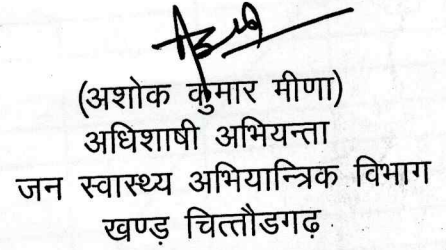 (अशोक कुमार मीणा)
अधिशाषी अभियन्ता
जन स्वास्थ्य अभियान्त्रिक विभाग
खण्ड़ चित्तौडगढ़